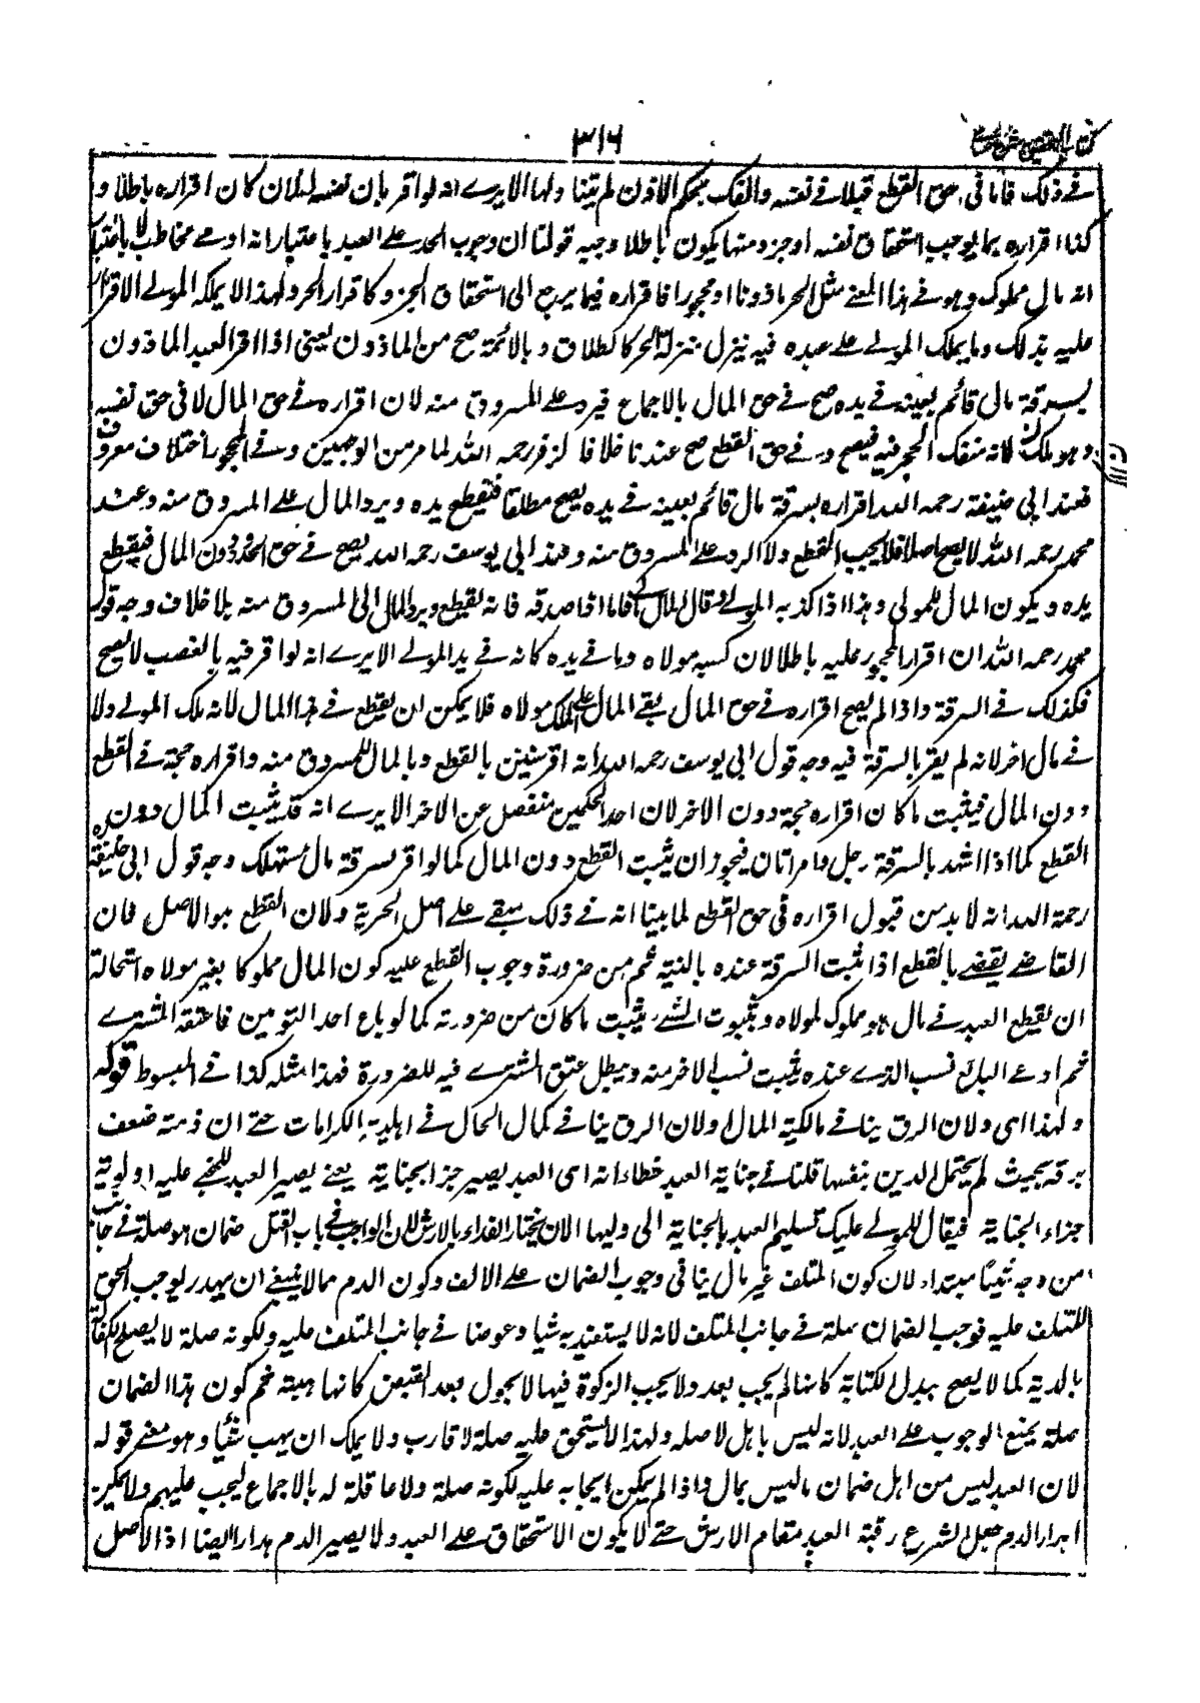 ٣١٦
في ذلك فاما في حق القطع قبلاقے نفسه والفك بحكم الاذن لم يتينا ولها الايرے انه لو اقر بان نفسه لفلان كان اقراره باطلا و
كذا اقراره بما يوجب استحقاق نفسه او جزء منها يكون باطلا وجه قولنا ان وجوب الحد على العبد باعتبار انه ادمے مخاطب لا باعتبار
انه مال مملوك وهو في هذا المعنے مثل الحر ماذونا او محجورا فاقراره فيما يرجع الى استحقاق الجزء كاقرار الحر ولهذا لا يملك المولے الاقرار
عليه بذلك وما لا يملك المولے على عبده فيه ينزل منزلة الحر كالطلاق وبالائمة صح من الماذون يعني اذا اقر العبد الماذون
بسرقة مال قائم بعينه في يده صح في حق المال بالاجماع فيرد على المسروق منه لان اقراره في حق المال لا في حق نفسه
وهو ملك لانه منفك الحجر فيه فيصح وفي حق القطع صح عندنا خلافا لزفر رحمه الله لما مر من الوجهين وفي المحجور اختلاف معروف
فعند ابي حنيفة رحمه الله اقراره بسرقة مال قائم بعينه في يده يصح مطلقا فيقطع يده ويرد المال على المسروق منه وعند
محمد رحمه الله لا يصح اصلا فلا يجب القطع ولا الرد على المسروق منه وعند ابي يوسف رحمه الله يصح في حق الحد دون المال فيقطع
يده ويكون المال للمولى وهذا اذا كذبه المولے وقال المال مالي فاما اذا صدقه فانه يقطع ويرد المال الى المسروق منه بلا خلاف وجه قول
محمد رحمه الله ان اقرار المحجور عليه باطل لان كسبه مولاه وما في يده كانه في يد المولے الايرے انه لو اقر فيه بالغصب لا يصح
فكذلك في السرقة واذا لم يصح اقراره في حق المال بقے المال على ملك مولاه فلا يمكن ان يقطع في هذا المال لانه ملك المولے ولا
في مال اخر لانه لم يقر بالسرقة فيه وجه قول ابي يوسف رحمه الله انه اقر بشيئين بالقطع وبالمال للمسروق منه واقراره حجة في القطع
دون المال فيثبت ما كان اقراره حجة دون الاخر لان احد الحكمين منفصل عن الاخر الايرے انه قد يثبت المال دون
القطع كما اذا شهد بالسرقة رجل وامراتان فيجوز ان يثبت القطع دون المال كما لو اقر بسرقة مال مستهلك وجه قول ابي حنيفة
رحمة الله انه لا بد من قبول اقراره في حق القطع لما بينا انه في ذلك مبقے على اصل الحرية ولان القطع هو الاصل فان
القاضے يقضے بالقطع اذا ثبت السرقة عنده بالبينة ثم من ضرورة وجوب القطع عليه كون المال مملوكا بغير مولاه استحالة
ان يقطع العبد في مال هو مملوك لمولاه وبثبوت الشے يثبت ما كان من ضرورته كما لو باع احد التومين فاعتقه المشترے
ثم ادعے البائع نسب الذے عنده يثبت نسب الاخر منه ويبطل عتق المشترے فيه للضرورة فهذا مثله كذا في المبسوط قوله
ولهذا اى ولان الرق ينافے مالكية المال او لان الرق ينافے كمال الحال في اهلية الكرامات حتے ان ذمته ضعف
برقه بحيث لم يحتمل الدين بنفسها قلنا في جناية العبد خطاء انه اى العبد يصير جزاء جنايته يعنے يصير العبد للمجنے عليه او لوليه
جزاء الجناية فيقال للمولے عليك تسليم العبد بالجناية الى وليها الا ان يختار الفداء بالارش لان الواجب في باب القتل ضمان هو صلة في جانب
من وجه شيئا مبتداء لان كون المتلف غير مال ينافي وجوب الضمان على الالف وكون الدم مما لا ينبغے ان يهدر يوجب الحق
للمتلف عليه فوجب الضمان صلة في جانب المتلف لانه لا يستفيد به شيا وعوضا في جانب المتلف عليه ولكونه صلة لا يصلح الكفالة
بالدية كما لا يصح ببدل الكتابة كانها لم يجب بعد ولا يجب الزكوة فيها الا بحول بعد القبض كانها هبة ثم كون هذا الضمان
صلة يمنع الوجوب على العبد لانه ليس باهل لاصله ولهذا لا يستحق عليه صلة لاقارب ولا يملك ان يهب شيئا وهو معنے قوله
لان العبد ليس من اهل ضمان ما ليس بمال واذا لم يمكن ايجابه عليه لكونه صلة ولا عاقلة له بالاجماع ليجب عليهم ولا يمكن
اهدار الدم جعل الشرع رقبة العبد مقام الارش حتے لا يكون الاستحقاق على العبد ولا يصير الدم هدارا ايضا اذ الاصل